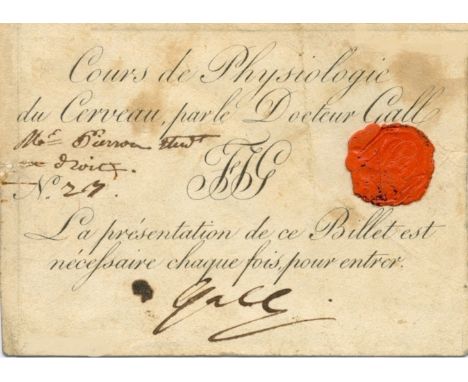 Cours de Physiologie
du Cerveau, par le Docteur Gall
Mr. Pierron Etudt
en droit.
N.º 27
FJG
La présentation de ce Billet est
nécessaire chaque fois, pour entrer.
Gall